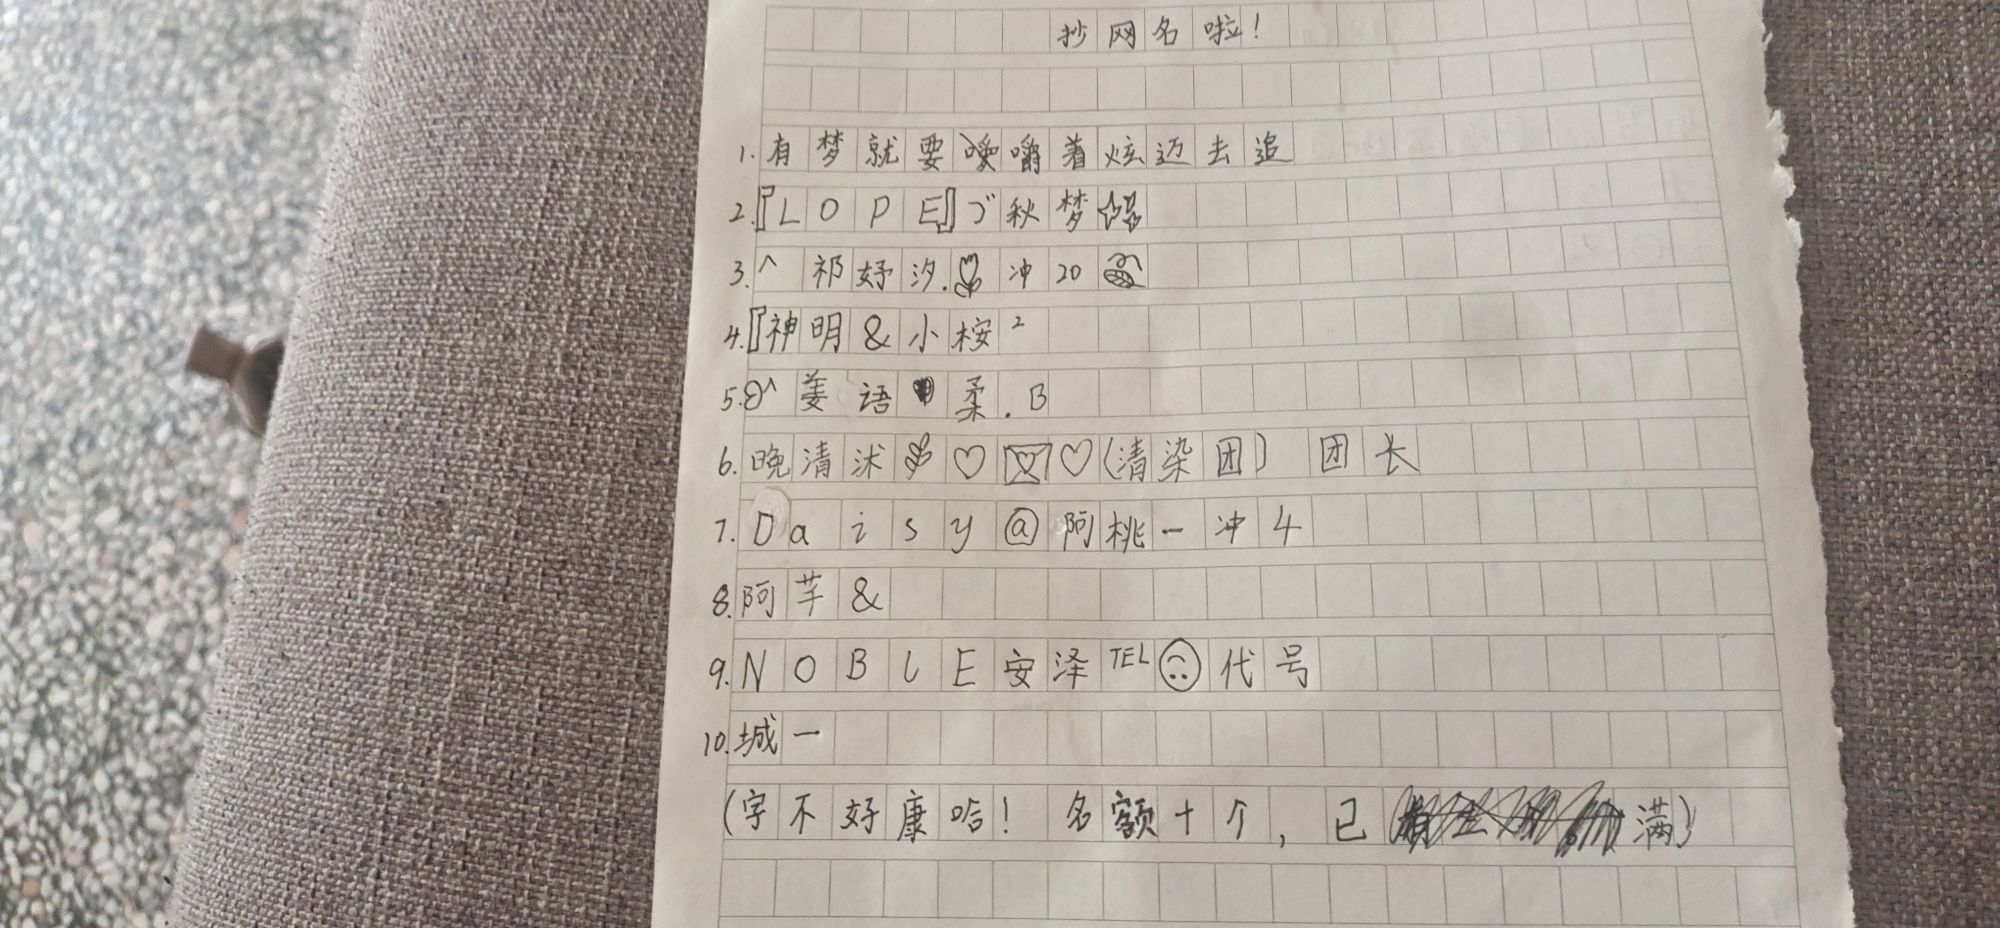 抄网名啦！
1.有梦就要嚼着炫迈去追
2.『LOPE』づ秋梦
3.^祁妤汐.冲20
4.『神明&小桉²
5.^姜语柔.B
6.晚清沭♡♡(清染团)团长
7.Daisy@阿桃一冲4
8.阿芊&
9.NOBLE安泽TEL代号
10.城一
(字不好康哈！名额十个，已满)